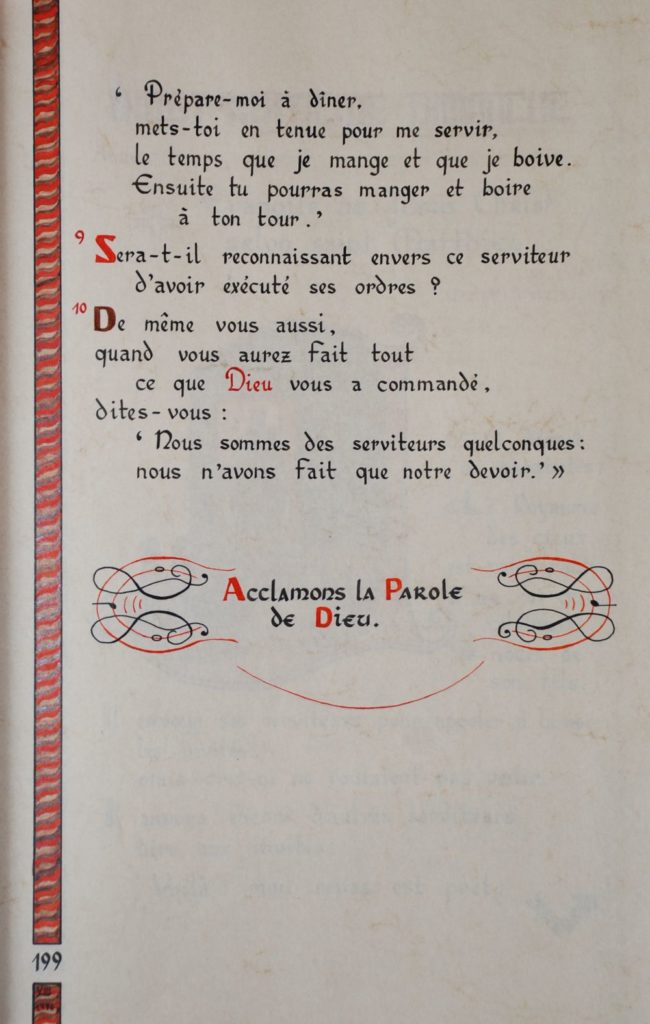 ‘ Prépare-moi à dîner,
mets-toi en tenue pour me servir,
le temps que je mange et que je boive.
Ensuite tu pourras manger et boire
à ton tour.’
9 Sera-t-il reconnaissant envers ce serviteur
d’avoir exécuté ses ordres ?
10 De même vous aussi,
quand vous aurez fait tout
ce que Dieu vous a commandé,
dites-vous :
‘ Nous sommes des serviteurs quelconques :
nous n’avons fait que notre devoir.’ »
Acclamons la Parole
de Dieu.
199